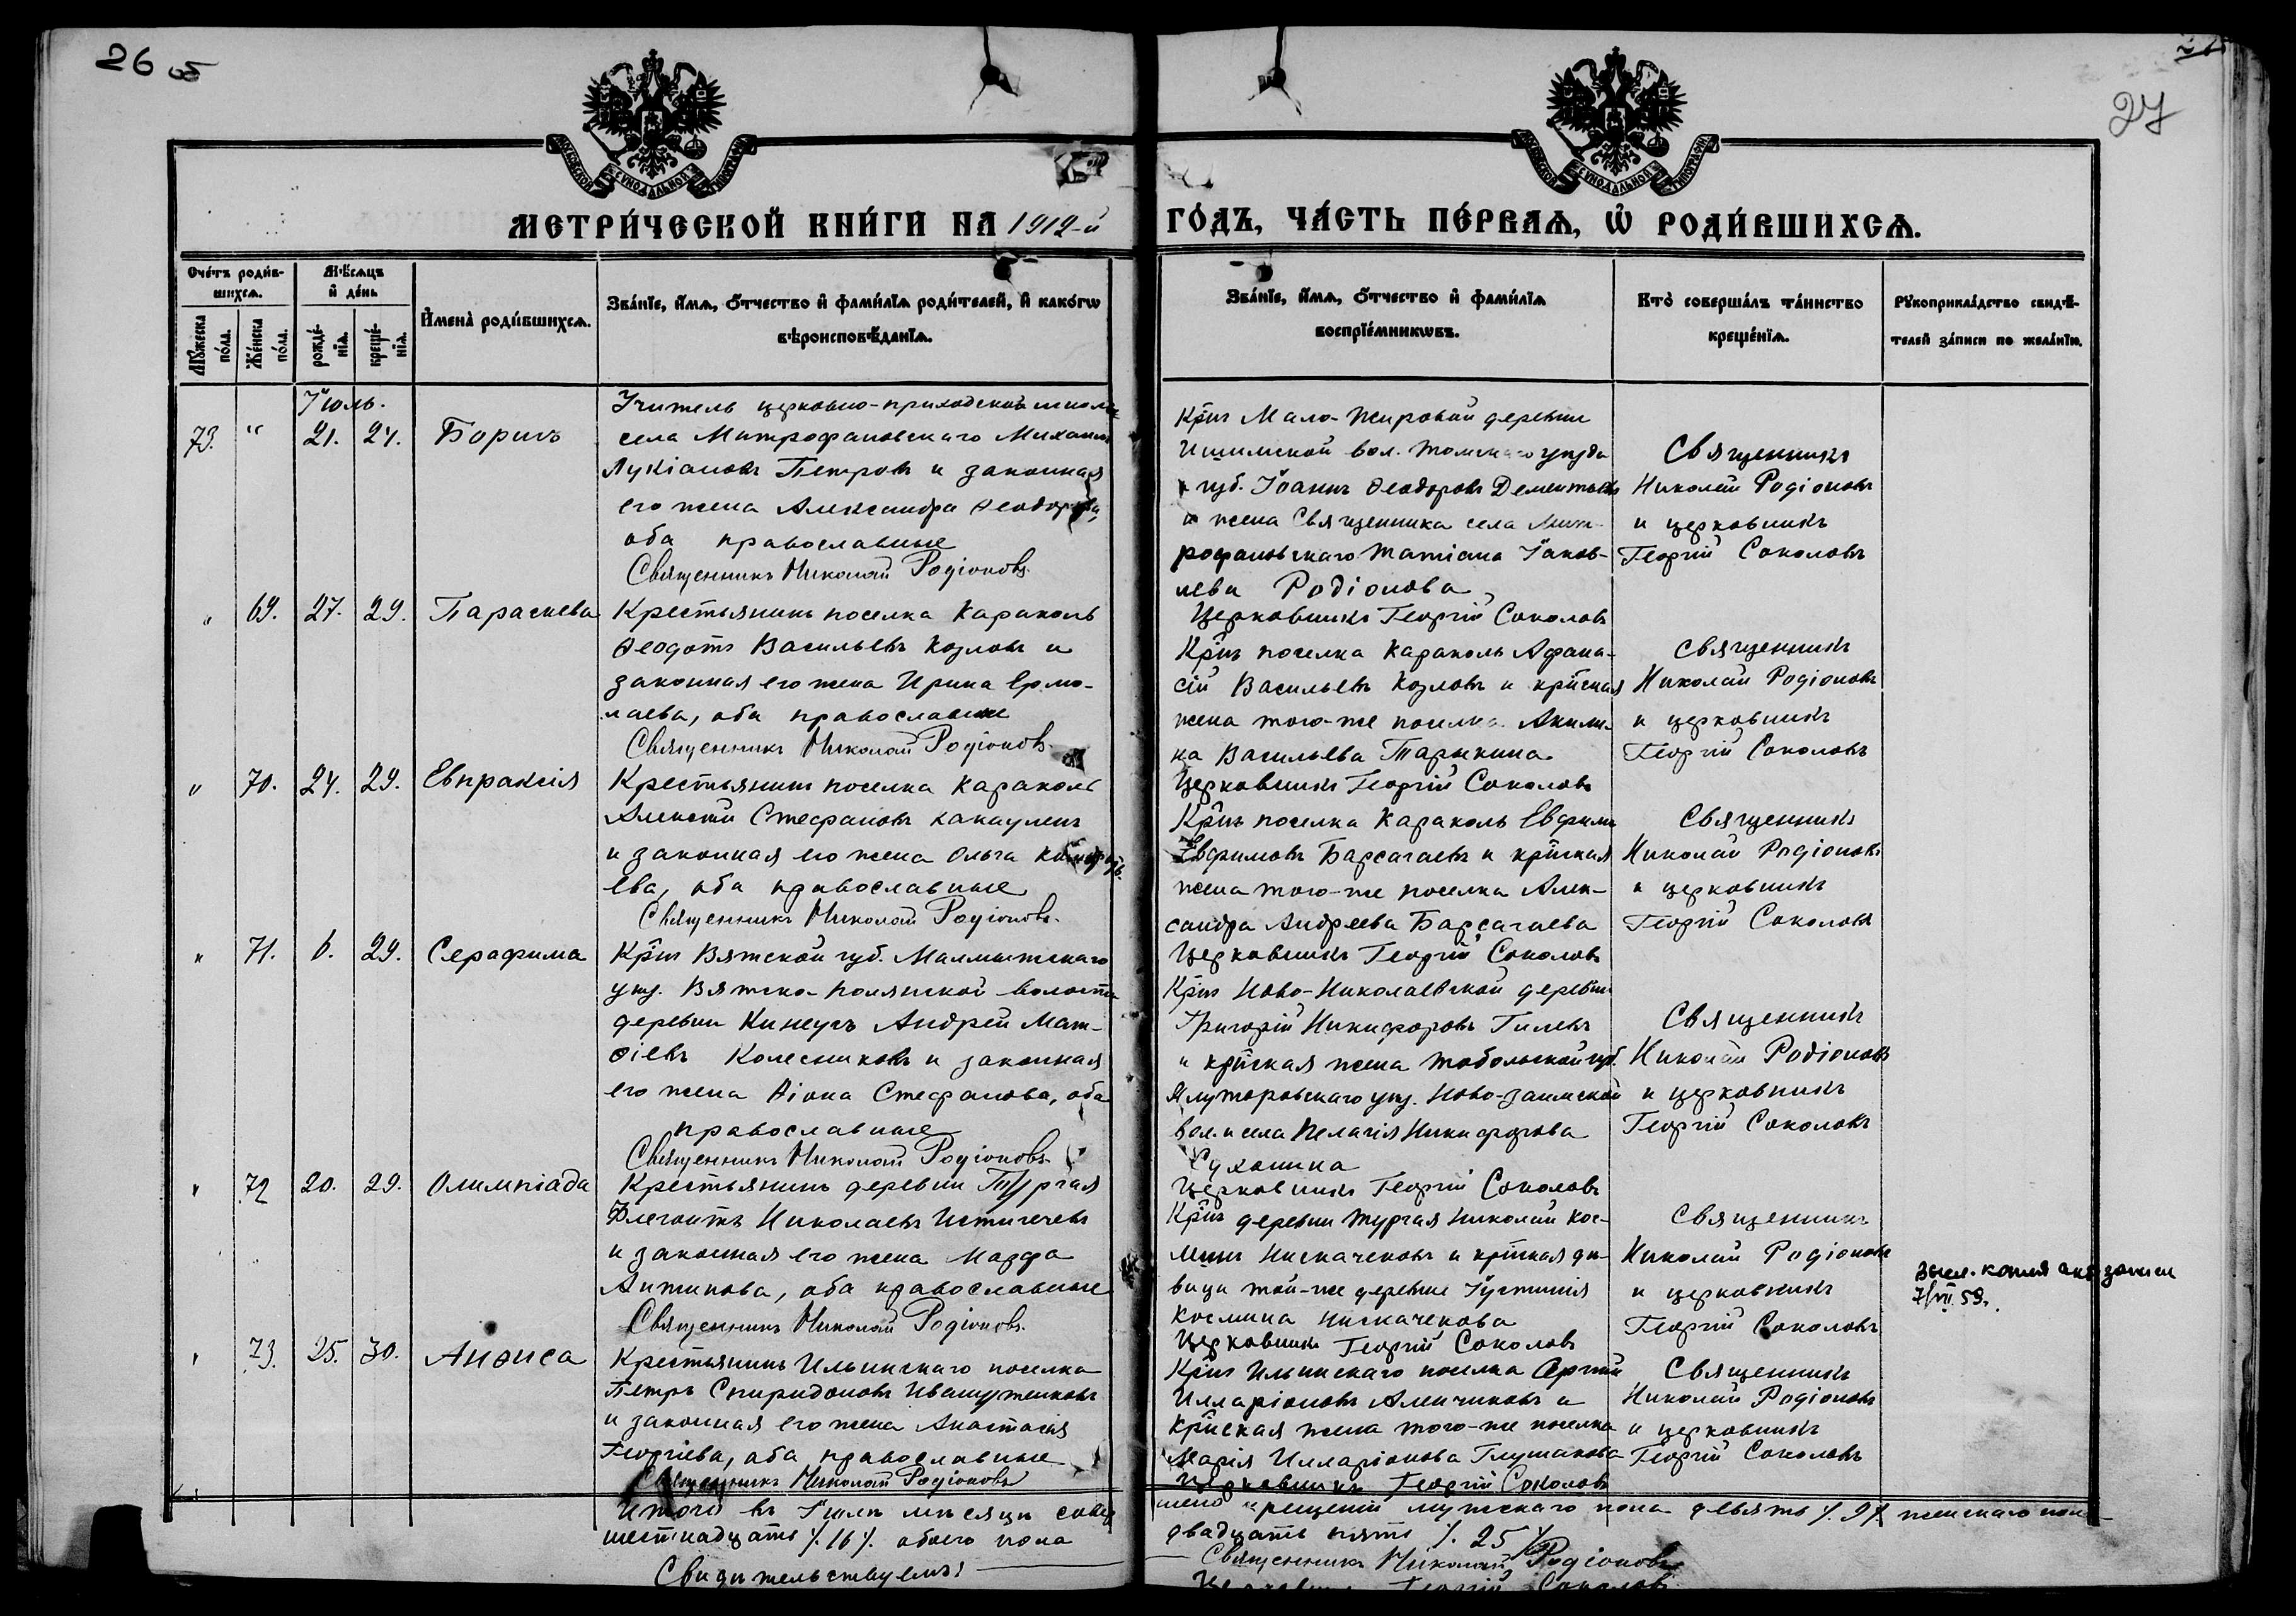 26 об
27
МОСКОВСКОЙ СѴНОДАЛЬНОЙ ТИПОГРАФІИ
МОСКОВСКОЙ СѴНОДАЛЬНОЙ ТИПОГРАФІИ
МЕТРИ́ЧЕСКОЙ КНИ́ГИ НА 1912-й ГО́ДЪ, ЧА́СТЬ ПЕ́РВАѦ, Ѡ РОДИ́ВШИХСѦ.
Сче́тъ роди́в-
шихсѧ.
Мꙋ́жеска
по́ла.
Же́нска
по́ла.
Мѣ́сѧцъ
и҆ де́нь
рожде́-
нїѧ.
креще́-
нїѧ.
И҆мена̀ роди́вшихсѧ.
Зва́нїе, и҆́мѧ, ѻ҆́тчество и҆ фами́лїѧ роди́телей, и҆ како́гѡ
вѣроисповѣ́данїѧ.
Зва́нїе, и҆́мѧ, ѻ҆́тчество и҆ фами́лїѧ
воспрїе́мникѡвъ.
Кто̀ соверша́лъ та́инство
креще́нїѧ.
Рꙋкоприкла́дство свидѣ́-
телей за́писи по жела́нїю.
Іюль.
73. " 21. 24. Борисъ
Учитель церковно-приходской школы
села Митрофановскаго Михаилъ
Лукіановъ Петровъ и законная
его жена Александра Ѳеодорова,
оба православные
Священникъ Николай Родіоновъ.
Кр̃нъ Мало-Жировой деревни
Ишимской вол. Томскаго уѣзда
и губ. Іоаннъ Ѳеодоровъ Дементьевъ
и жена Священника села Мит-
рофановскаго Татіана Іаков-
лева Родіонова
Церковникъ Георгій Соколовъ
Священникъ
Николай Родіоновъ
и церковникъ
Георгій Соколовъ
" 69. 27. 29. Параскева
Крестьянинъ поселка Караколь
Ѳеодотъ Васильевъ Козловъ и
законная его жена Ирина Ермо-
лаева, оба православные
Священникъ Николай Родіоновъ.
Кр̃нъ поселка Караколь Афана-
сій Васильевъ Козловъ и кр̃нская
жена того-же поселка Акили-
на Васильева Тарыкина
Церковникъ Георгій Соколовъ
Священникъ
Николай Родіоновъ
и церковникъ
Георгій Соколовъ
" 70. 24. 29. Евпраксія
Крестьянинъ поселка Караколь
Алексѣй Стефановъ
и законная его жена Ольга
ева, оба православные
Священникъ Николай Родіоновъ.
Кр̃нъ поселка Караколь Евфимій
Евфимовъ Барсагаевъ и кр̃нская
жена того-же поселка Алек-
сандра Андреева Барсагаева
Церковникъ Георгій Соколовъ
Священникъ
Николай Родіоновъ
и церковникъ
Георгій Соколовъ
" 71. 6. 29. Серафима
Кр̃нъ Вятской губ. Малмыжскаго
уѣз. Вятско-Полянской волости
деревни Андрей Мат-
ѳіевъ Колесниковъ и законная
его жена Ѳіона Стефанова, оба
православные
Священникъ Николай Родіоновъ.
Кр̃нъ Ново-Николаевской деревни
Григорій Никифоровъ Гилевъ
и кр̃нская жена Тобольской губ.
Ялуторовскаго уѣз. Ново-Заимской
вол. и села Пелагія Никифорова
Суханина
Церковникъ Георгій Соколовъ
Священникъ
Николай Родіоновъ
и церковникъ
Георгій Соколовъ
" 72 20. 29. Олимпіада
Крестьянинъ деревни Тургая
Флегонтъ Николаевъ
и законная его жена Марфа
Антипова, оба православные
Священникъ Николай Родіоновъ.
Кр̃нъ деревни Тургая Николай Кос-
минъ и кр̃нская дѣ-
вица той-же деревни Іустинія
Космина
Церковникъ Георгій Соколовъ
Священникъ
Николай Родіоновъ
и церковникъ
Георгій Соколовъ
Высл. копия акт записи
7/VII 59.
" 73. 25. 30. Анѳиса
Крестьянинъ Ильинскаго поселка
Петръ Спиридоновъ Ивашутенковъ
и законная его жена Анастасія
Георгіева, оба православные
Священникъ Николай Родіоновъ
Кр̃нъ Ильинскаго поселка Сергій
Илларіоновъ Аленчиковъ и
кр̃нская жена того-же поселка
Марія Илларіонова Глушакова
Церковникъ Георгій Соколовъ
Священникъ
Николай Родіоновъ
и церковникъ
Георгій Соколовъ
Итого въ Іюлѣ мѣсяцѣ совер шено крещеній мужскаго пола девять /. 9 /. женскаго пола
шестнадцать /. 16 /. обоего пола двадцать пять /. 25 /.
Свидѣтельствуемъ: Священникъ Николай Родіоновъ
Церковникъ Георгій Соколовъ